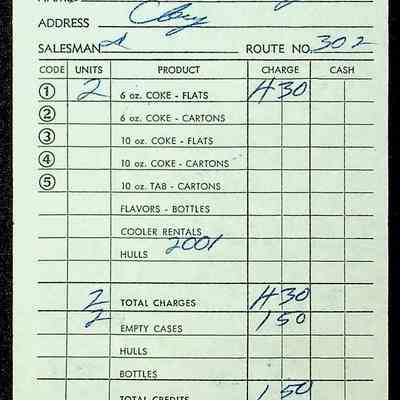 ADDRESS Clay
SALESMAN ROUTE NO. 302
CODE UNITS PRODUCT CHARGE CASH
① 2 6 oz. COKE - FLATS 4 30
② 6 oz. COKE - CARTONS
③ 10 oz. COKE - FLATS
④ 10 oz. COKE - CARTONS
⑤ 10 oz. TAB - CARTONS
FLAVORS - BOTTLES
COOLER RENTALS
HULLS 2001
2 TOTAL CHARGES 4 30
2 EMPTY CASES 1 50
HULLS
BOTTLES
TOTAL CREDITS 1 50